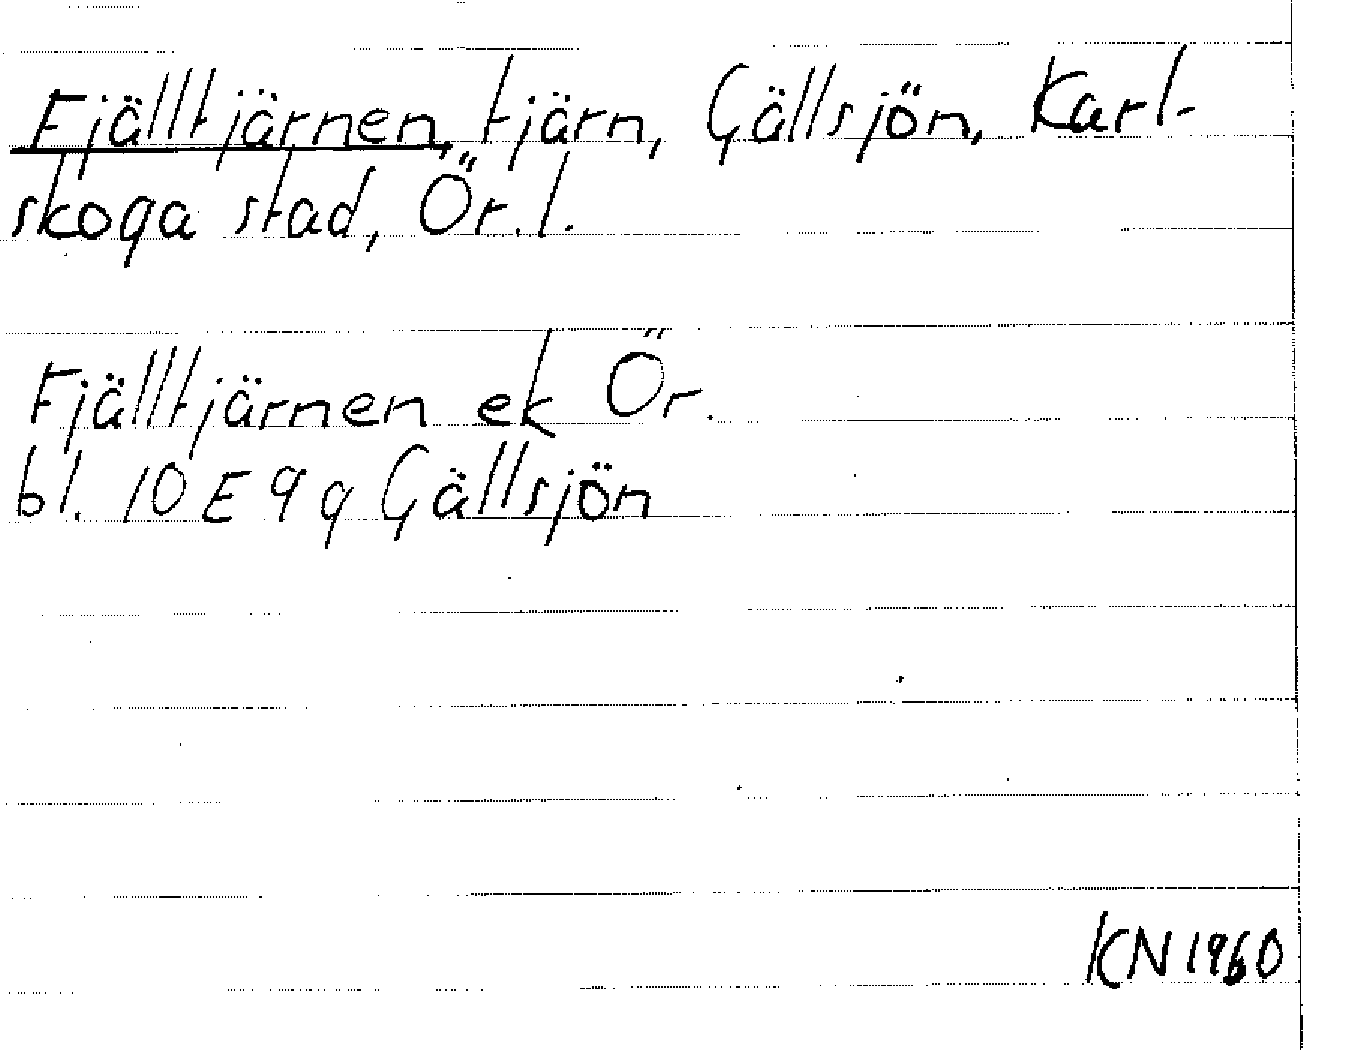 Fjälltjärnen, tjärn, Gällsjön, Karl-
skoga stad, Ör. l.
Fjälltjärnen ek Ör.
bl. 10 E 9 g Gällsjön
KN 1960